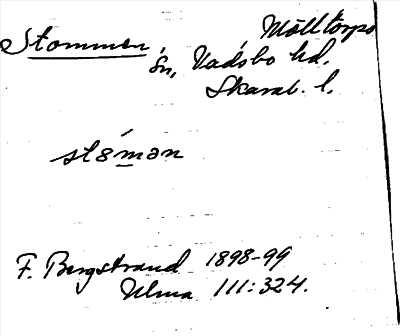 Stommen, Mölltorps
sn, Vadsbo hd.
Skarab. l.
stómən
F. Bergstrand 1898-99
Ulma 111:324.